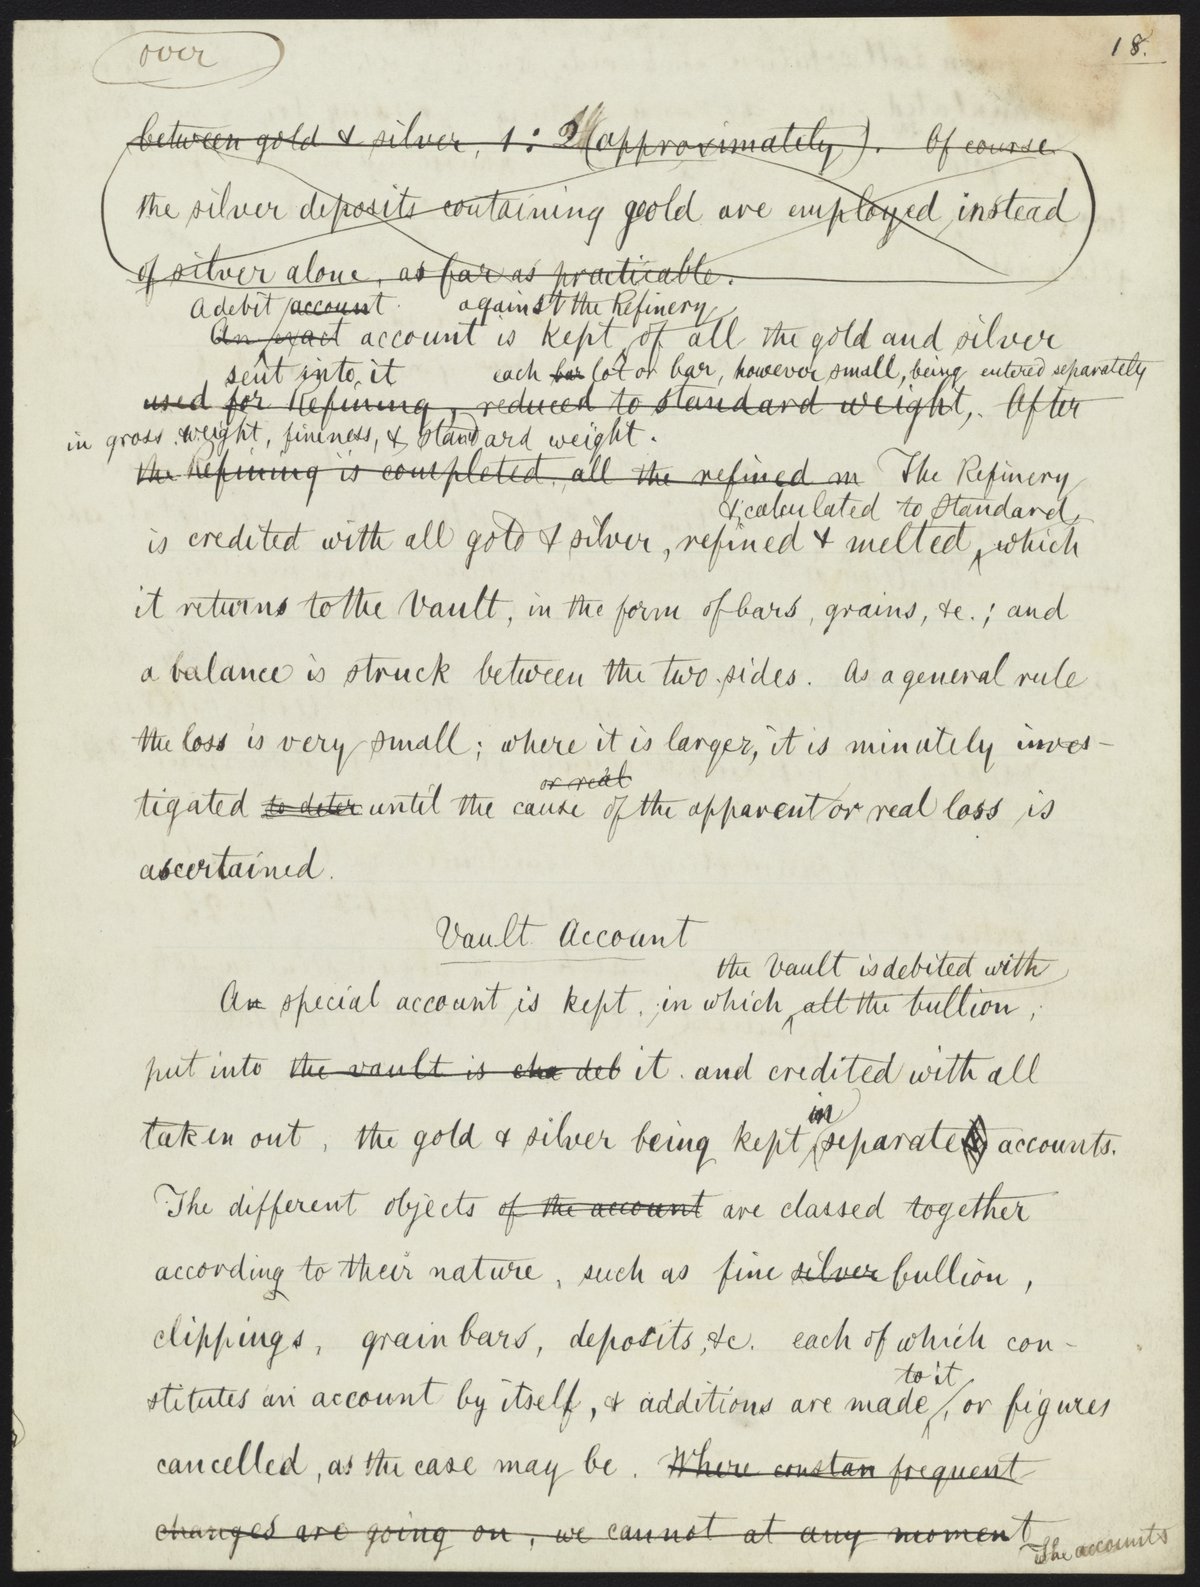 over
18.
between gold & silver, 1 : 2 (approximately). Of course
the silver deposits containing goold are employed instead
of silver alone, as far as practicable.
A debit account against the Refinery
An exact account is kept of all the gold and silver
sent into it each bar lot or bar, however small, being entered separately
used for Refining, reduced to standard weight,. After
in gross weight, fineness, & standard weight.
the Refining is completed, all the refined m The Refinery
& calculated to standard
is credited with all gold & silver, refined & melted, which
it returns to the Vault, in the form of bars, grains, &c.; and
a balance is struck between the two sides. As a general rule
the loss is very small; where it is larger, it is minutely inves-
or real
tigated to deter until the cause of the apparent or real loss is
ascertained.
Vault Account
the Vault is debited with
An special account is kept, in which all the bullion,
put into the vault is cha deb it and credited with all
in
taken out, the gold & silver being kept separate accounts.
The different objects of the account are classed together
according to their nature, such as fine silver bullion,
clippings, grain bars, deposits, &c. each of which con-
to it
stitutes an account by itself, & additions are made, or figures
cancelled, as the case may be. Where constan frequent
changes are going on, we cannot at any moment
The accounts